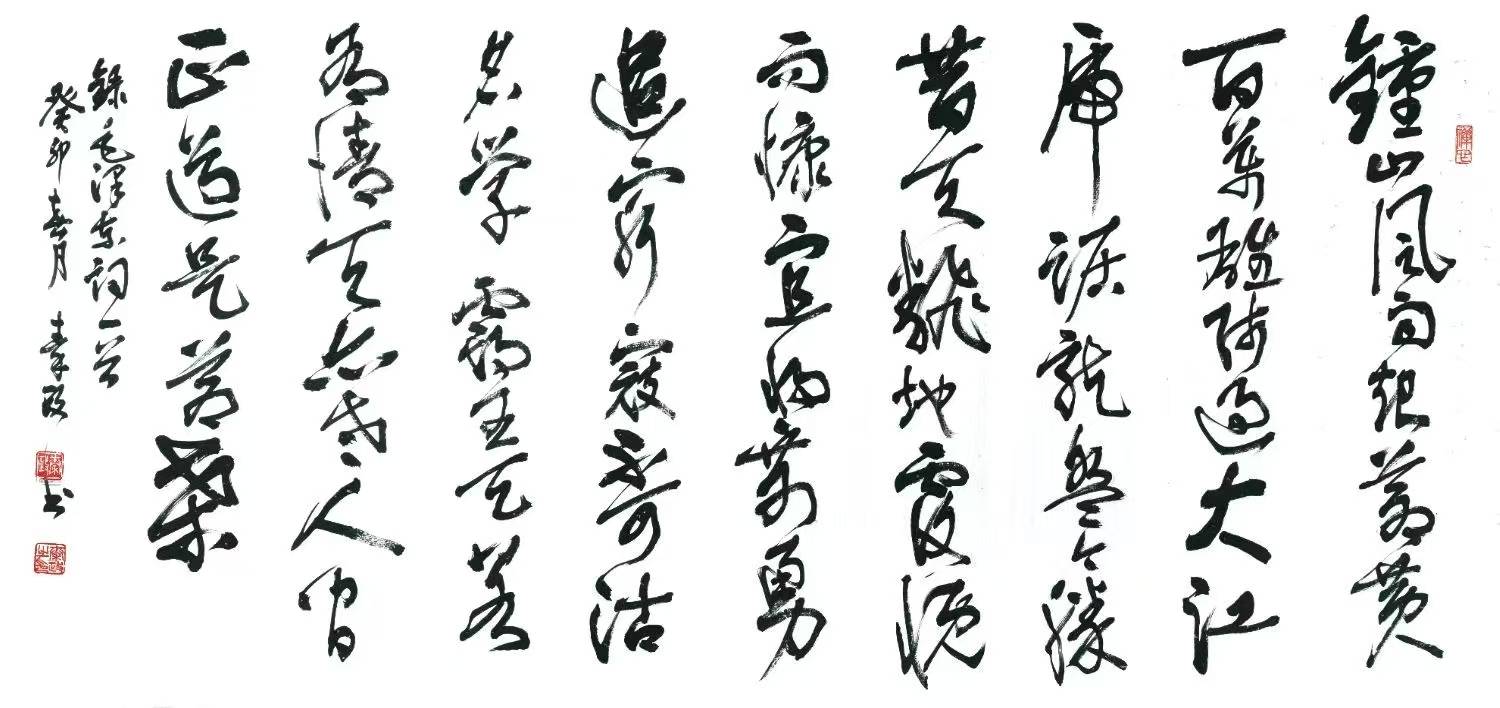 鐘山風雨起蒼黄
百萬雄師過大江
虎踞龍盤今勝
昔天翻地覆慨
而慷宜将剩勇
追窮寇不可沽
名学霸王天若
有情天亦老人间
正道是蒼桑
録毛澤東詞一首
癸卯 月 书